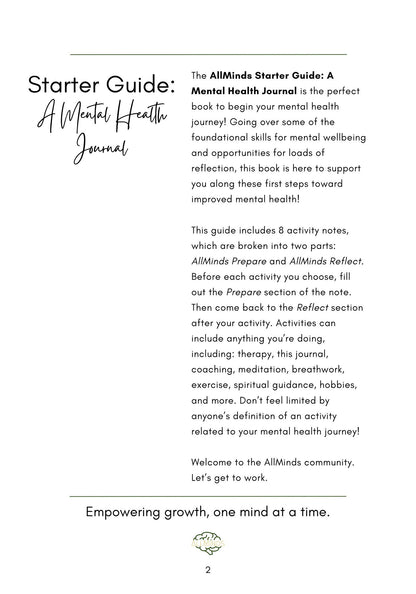 Starter Guide:
A Mental Health
Journal
The AllMinds Starter Guide: A
Mental Health Journal is the perfect
book to begin your mental health
journey! Going over some of the
foundational skills for mental wellbeing
and opportunities for loads of
reflection, this book is here to support
you along these first steps toward
improved mental health!
This guide includes 8 activity notes,
which are broken into two parts:
AllMinds Prepare and AllMinds Reflect.
Before each activity you choose, fill
out the Prepare section of the note.
Then come back to the Reflect section
after your activity. Activities can
include anything you're doing,
including: therapy, this journal,
coaching, meditation, breathwork,
exercise, spiritual guidance, hobbies,
and more. Don't feel limited by
anyone's definition of an activity
related to your mental health journey!
Welcome to the AllMinds community.
Let's get to work.
Empowering growth, one mind at a time.
2